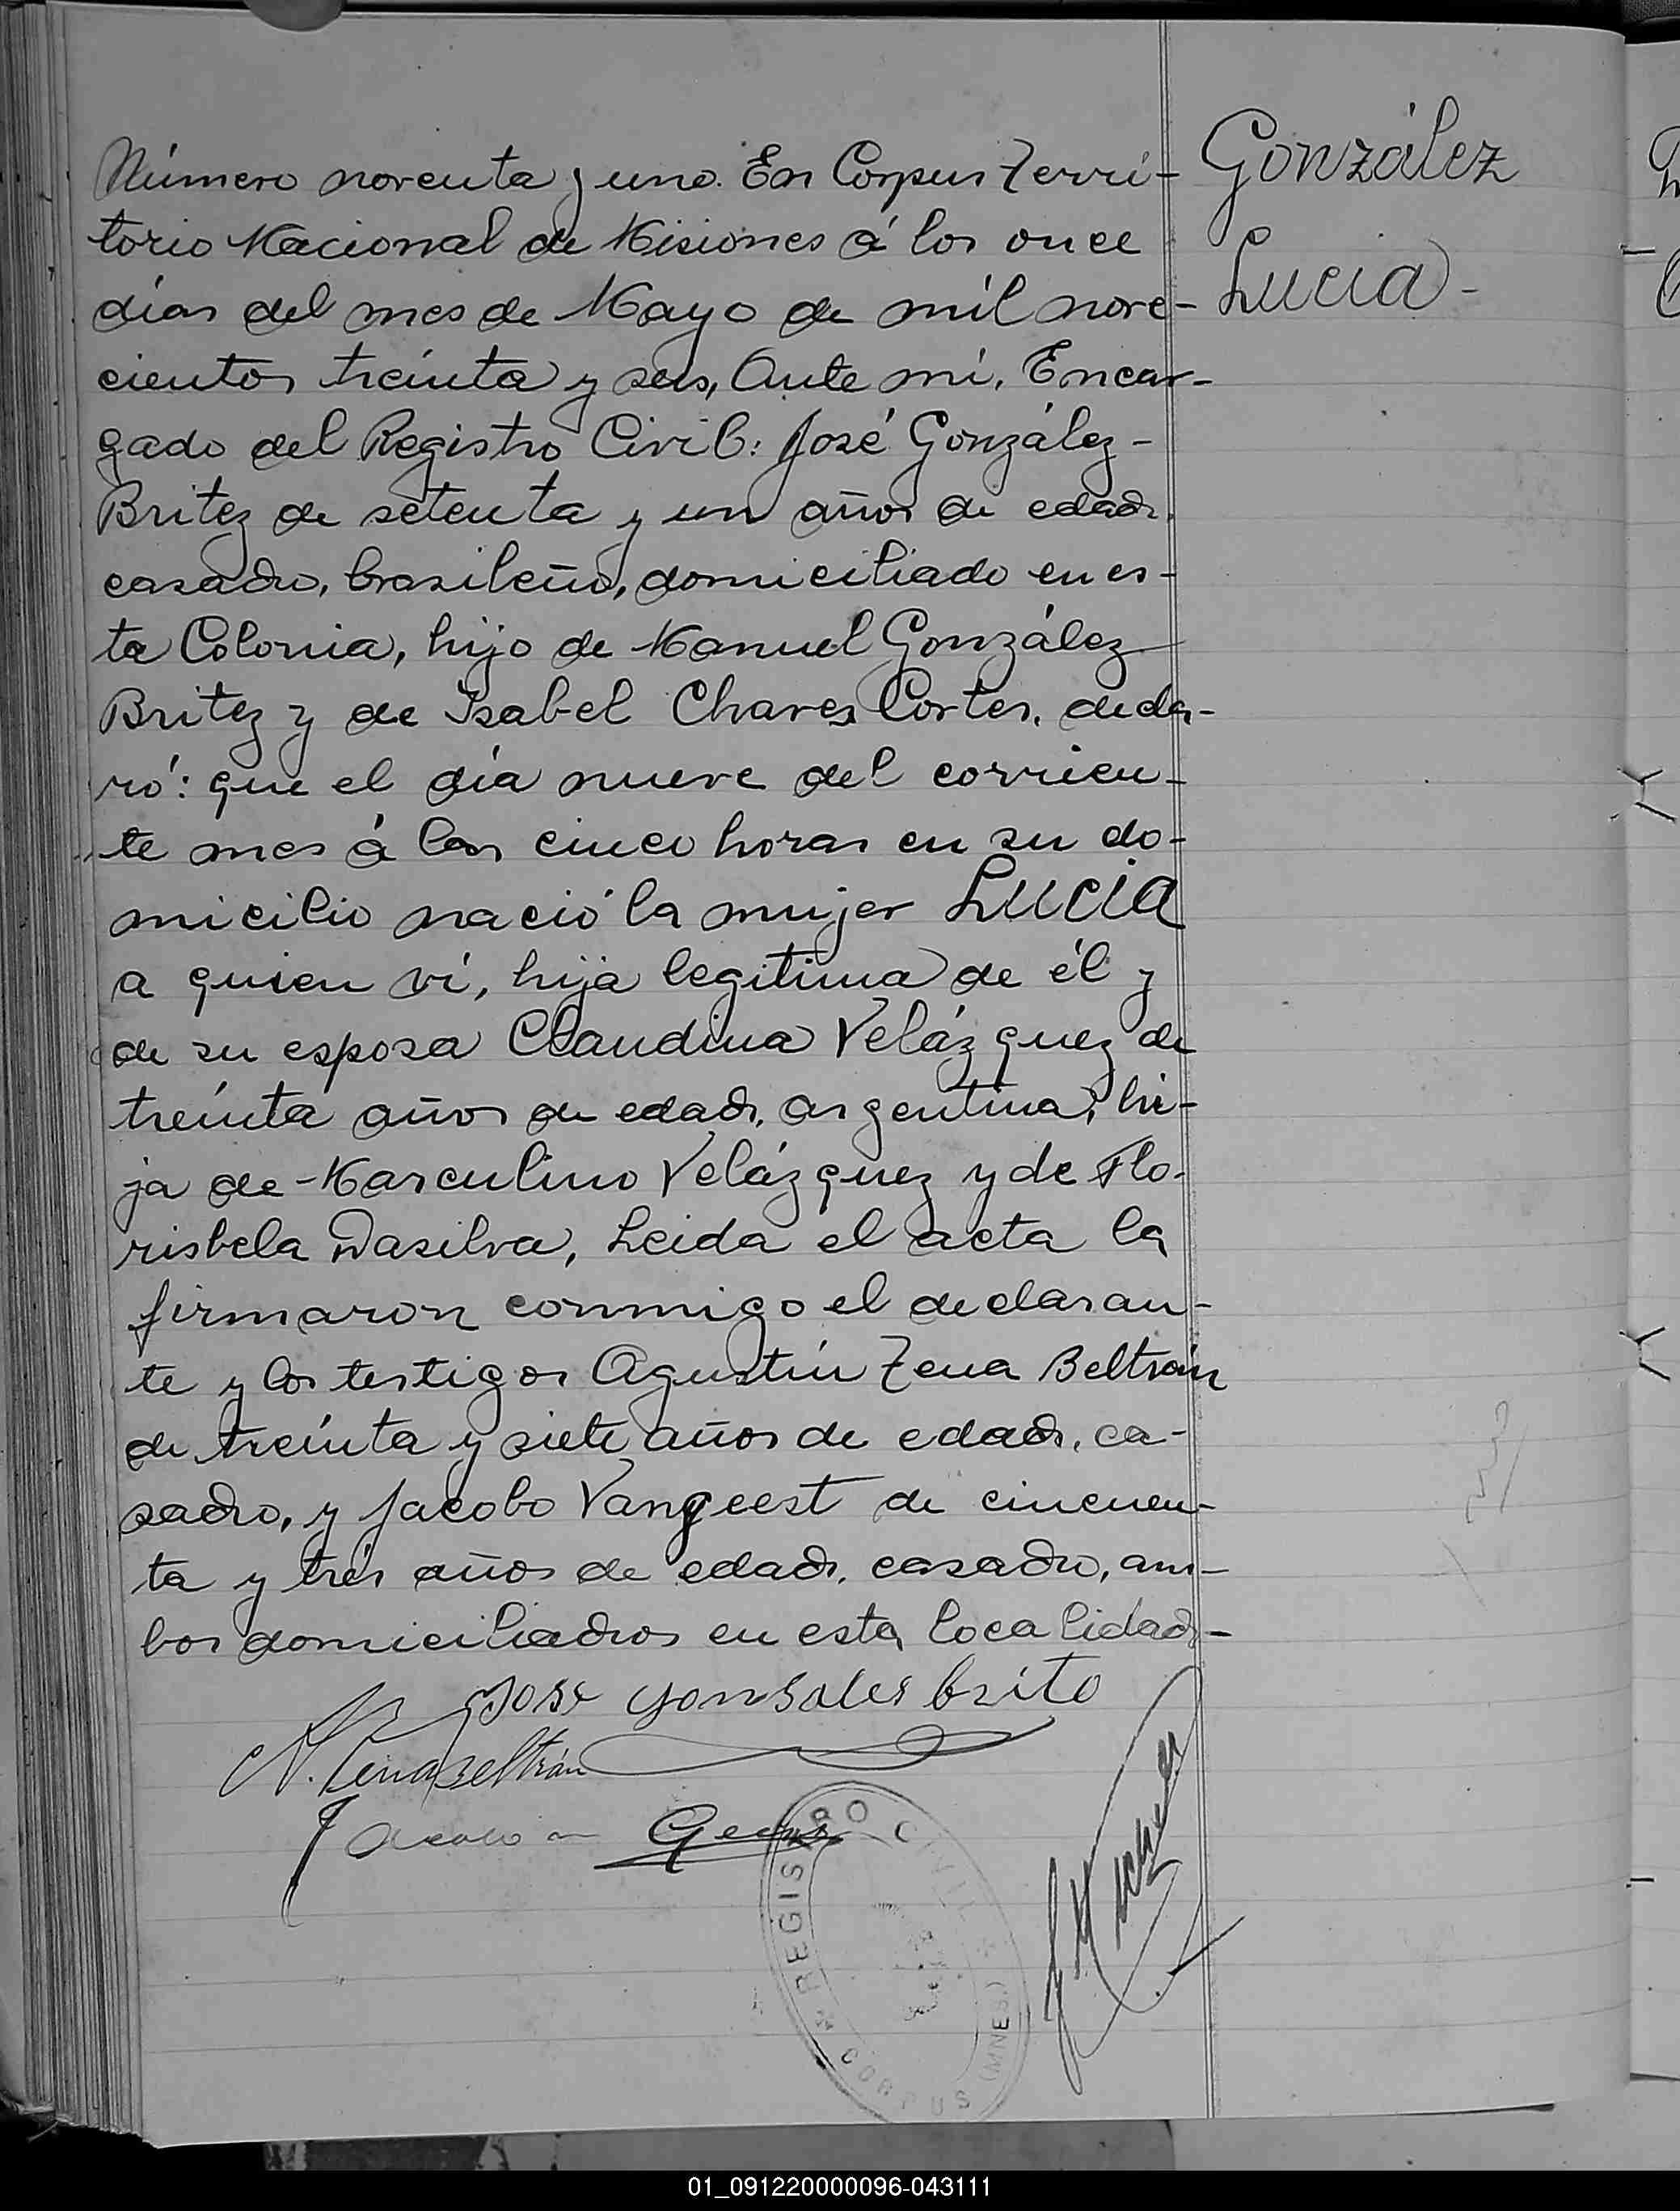 González
Lucia -
Número noventa y uno. En Corpus Terri-
torio Nacional de Misiones á los once
días del mes de Mayo de mil nove-
cientos treinta y seis, Ante mí, Encar-
gado del Registro Civil: José González-
Britez de setenta y un años de edad,
casado, brasileño, domiciliado en es-
ta Colonia, hijo de Manuel González
Britez y de Isabel Chaves Cortes, decla-
ró: que el día nueve del corrien-
te mes á las cinco horas en su do-
micilio nació la mujer LUCIA
a quien ví, hija legitima de él y
de su esposa Claudina Velázquez de
treinta años de edad, argentina, hi-
ja de Marculino Velázquez y de Flo-
risbela Dasilva, Leida el acta la
firmaron conmigo el declaran-
te y los testigos Agustín Zena Beltrán
de treinta y siete años de edad, ca-
sado, y Jacobo Vangeest de cincuen-
ta y trés años de edad, casado, am-
bos domiciliados en esta localidad-
Jose gonsales brito
REGISTRO CIVIL
CORPUS (MNES.)
01_091220000096-043111